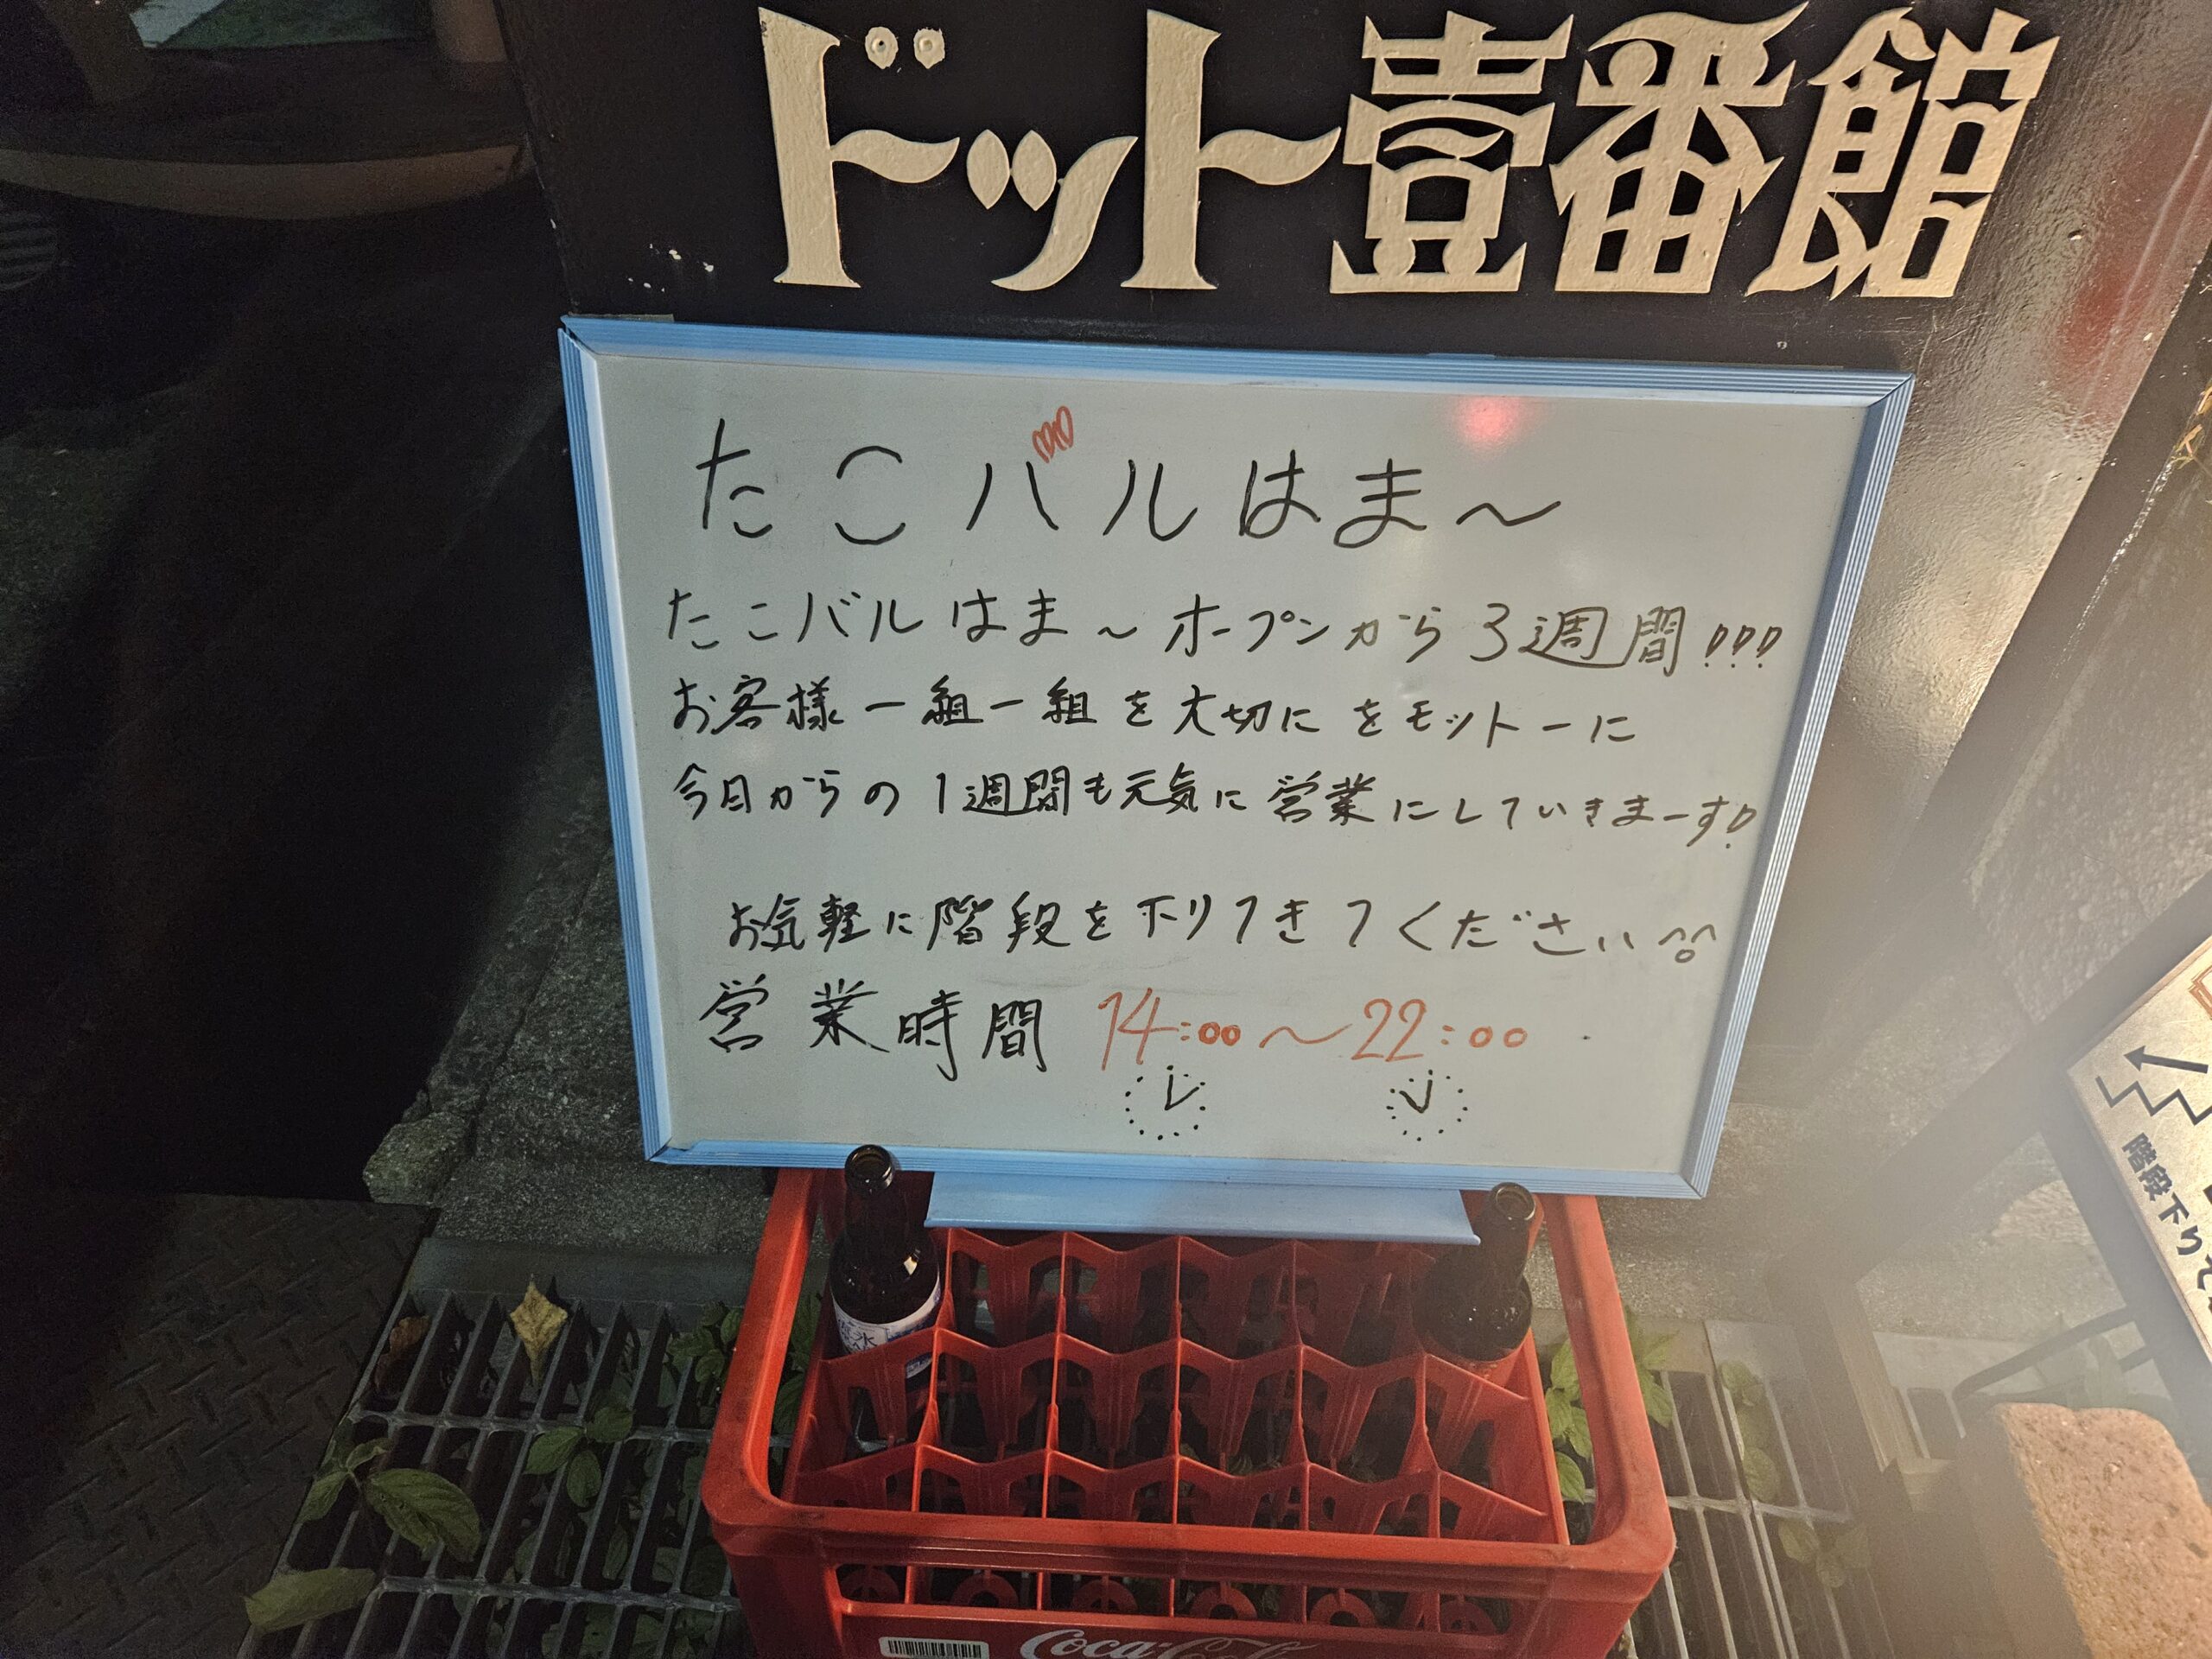 ドット壹番館
たこバルはま～
たこバルはま～オープンから3週間!!!
お客様一組一組を大切にをモットーに
今日からの1週間も元気に営業にしていきまーす!
お気軽に階段を下りてきてください^o^
営業時間 14:00～22:00
階段下りて
Coca-Cola